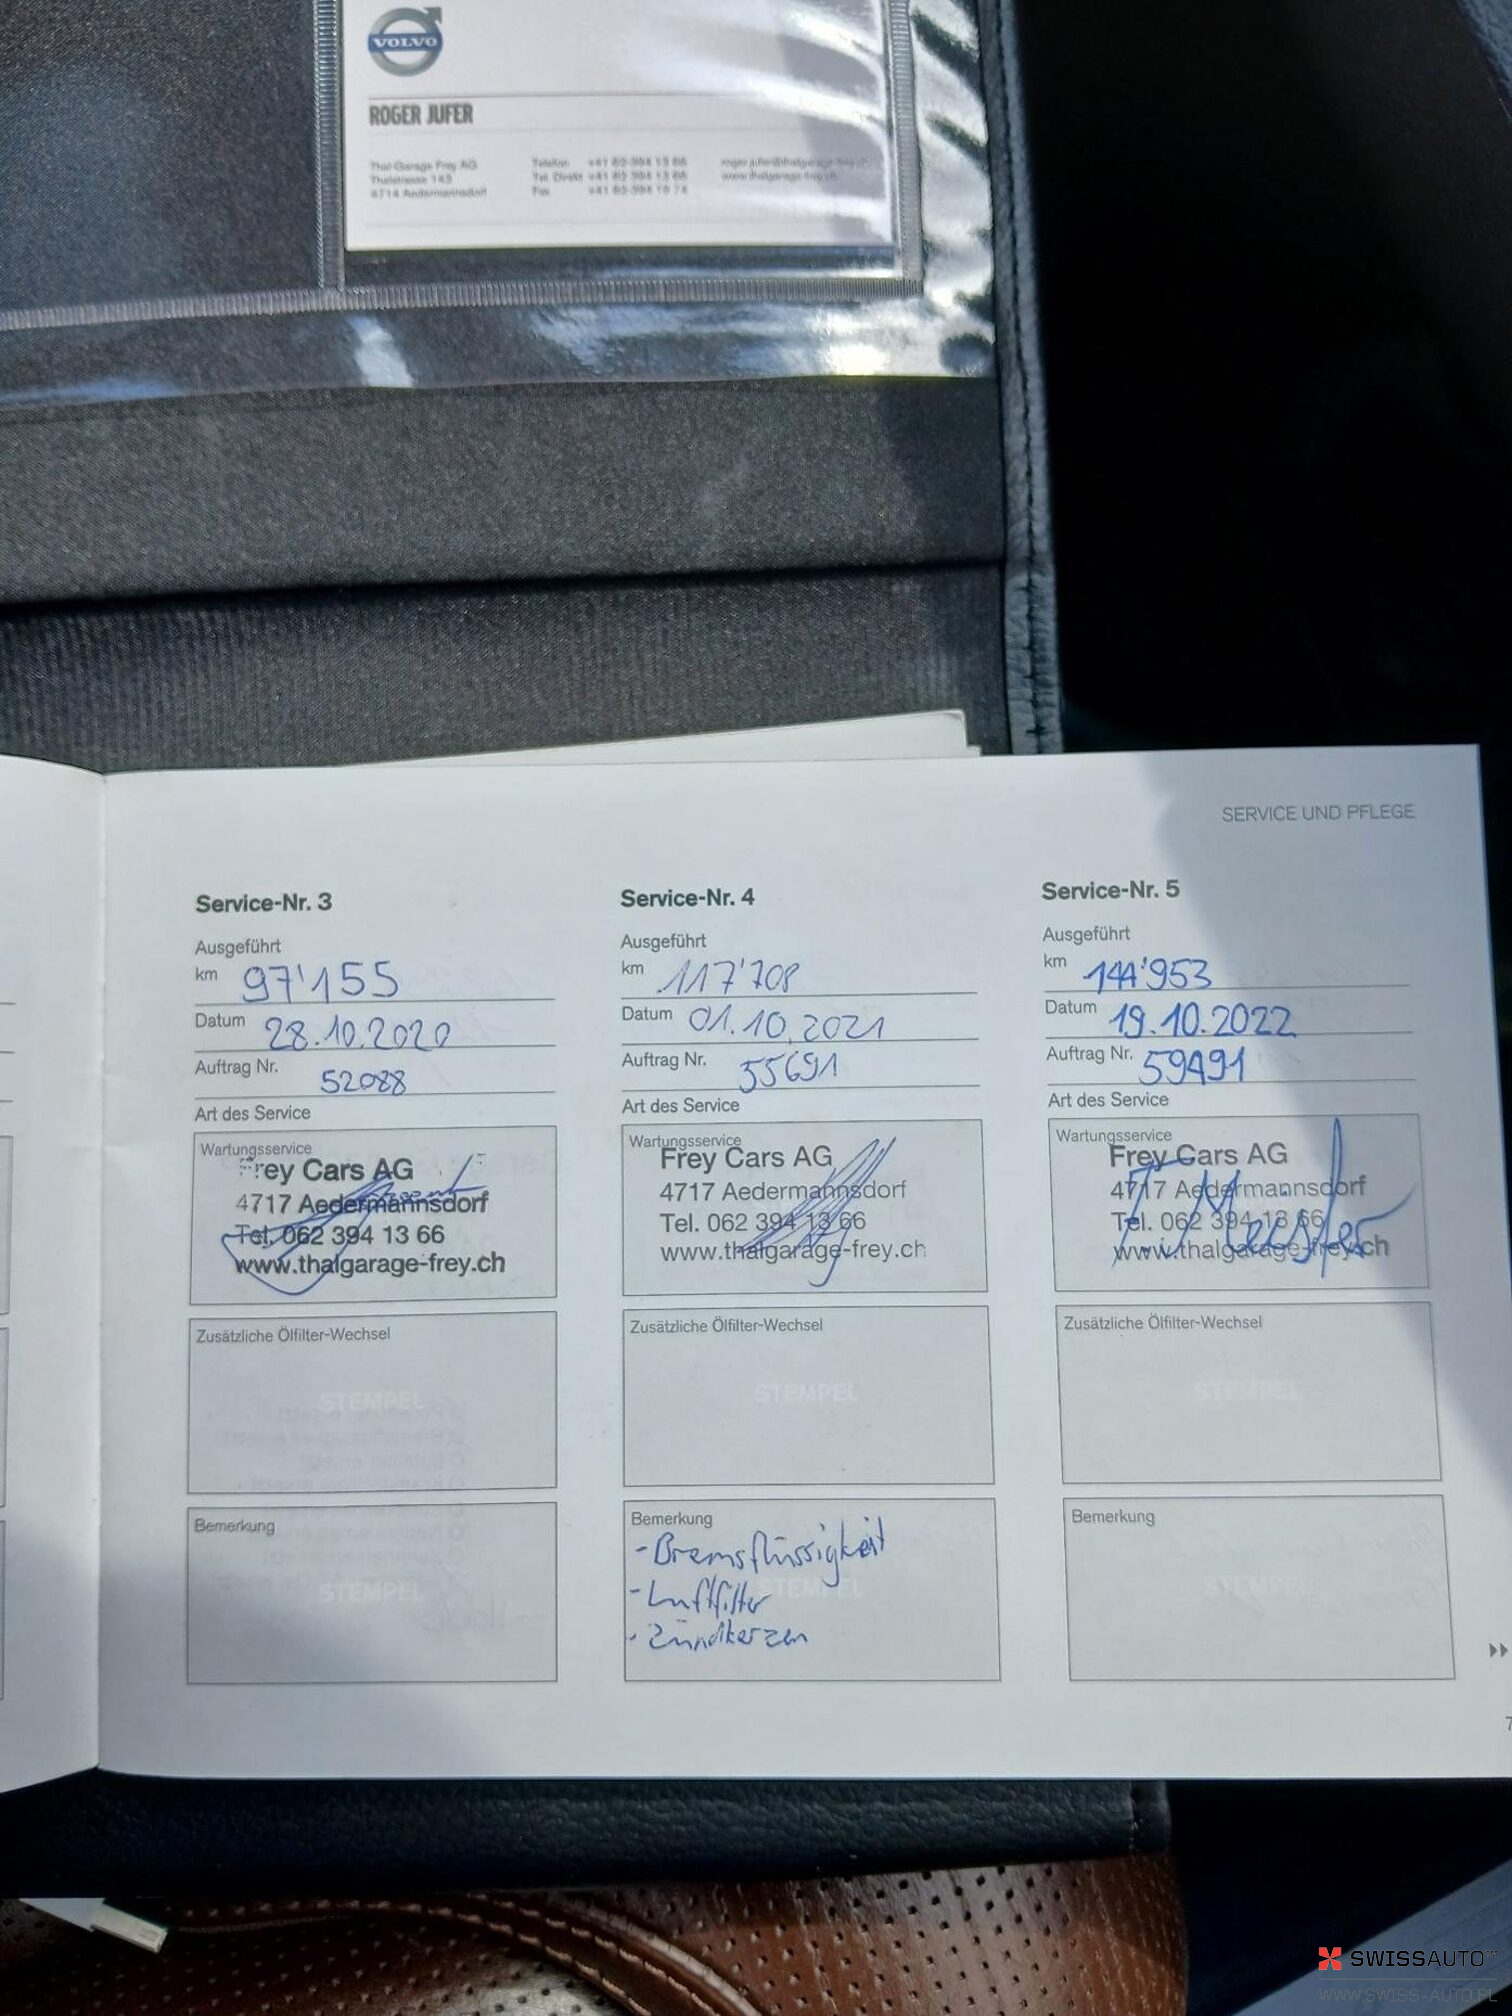 VOLVO
ROGER JUFER
Thal Garage Frey AG
Thalstrasse 143
4714 Aedermannsdorf
Telefon
Tel. Direkt
Fax
SERVICE UND PFLEGE
Service-Nr. 3
Ausgeführt
km 97'155
Datum 28.10.2020
Auftrag Nr. 52088
Art des Service
Wartungsservice
Frey Cars AG
4717 Aedermannsdorf
Tel. 062 394 13 66
www.thalgarage-frey.ch
Zusätzliche Ölfilter-Wechsel
STEMPEL
Bemerkung
STEMPEL
Service-Nr. 4
Ausgeführt
km 117'708
Datum 01.10.2021
Auftrag Nr. 55691
Art des Service
Wartungsservice
Frey Cars AG
4717 Aedermannsdorf
Tel. 062 394 13 66
www.thalgarage-frey.ch
Zusätzliche Ölfilter-Wechsel
STEMPEL
Bemerkung
- Bremsflüssigkeit
- Luftfilter
- Zündkerzen
STEMPEL
Service-Nr. 5
Ausgeführt
km 144'953
Datum 19.10.2022
Auftrag Nr. 59491
Art des Service
Wartungsservice
Frey Cars AG
4717 Aedermannsdorf
Tel. 062 394 13 66
www.thalgarage-frey.ch
Zusätzliche Ölfilter-Wechsel
STEMPEL
Bemerkung
STEMPEL
7
SWISSAUTO
WWW.SWISS-AUTO.PL